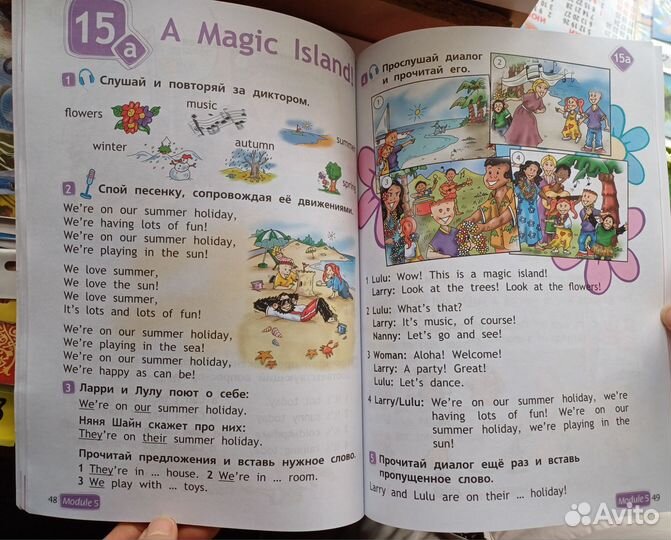 15a A Magic Island!
1 Слушай и повторяй за диктором.
flowers
music
summer
winter
autumn
spring
2 Спой песенку, сопровождая её движениями.
We're on our summer holiday,
We're having lots of fun!
We're on our summer holiday,
We're playing in the sun!
We love summer,
We love the sun!
We love summer,
It's lots and lots of fun!
We're on our summer holiday,
We're playing in the sea!
We're on our summer holiday,
We're happy as can be!
3 Ларри и Лулу поют о себе:
We're on our summer holiday.
Няня Шайн скажет про них:
They're on their summer holiday.
Прочитай предложения и вставь нужное слово.
1 They're in … house. 2 We're in … room.
3 We play with … toys.
48 Module 5
Прослушай диалог
и прочитай его.
15a
1
2
3
4
1 Lulu: Wow! This is a magic island!
Larry: Look at the trees! Look at the flowers!
2 Lulu: What's that?
Larry: It's music, of course!
Nanny: Let's go and see!
3 Woman: Aloha! Welcome!
Larry: A party! Great!
Lulu: Let's dance.
4 Larry/Lulu: We're on our summer holiday, we're
having lots of fun! We're on our
summer holiday, we're playing in the
sun!
5 Прочитай диалог ещё раз и вставь
пропущенное слово.
Larry and Lulu are on their … holiday!
Module 5 49
Avito